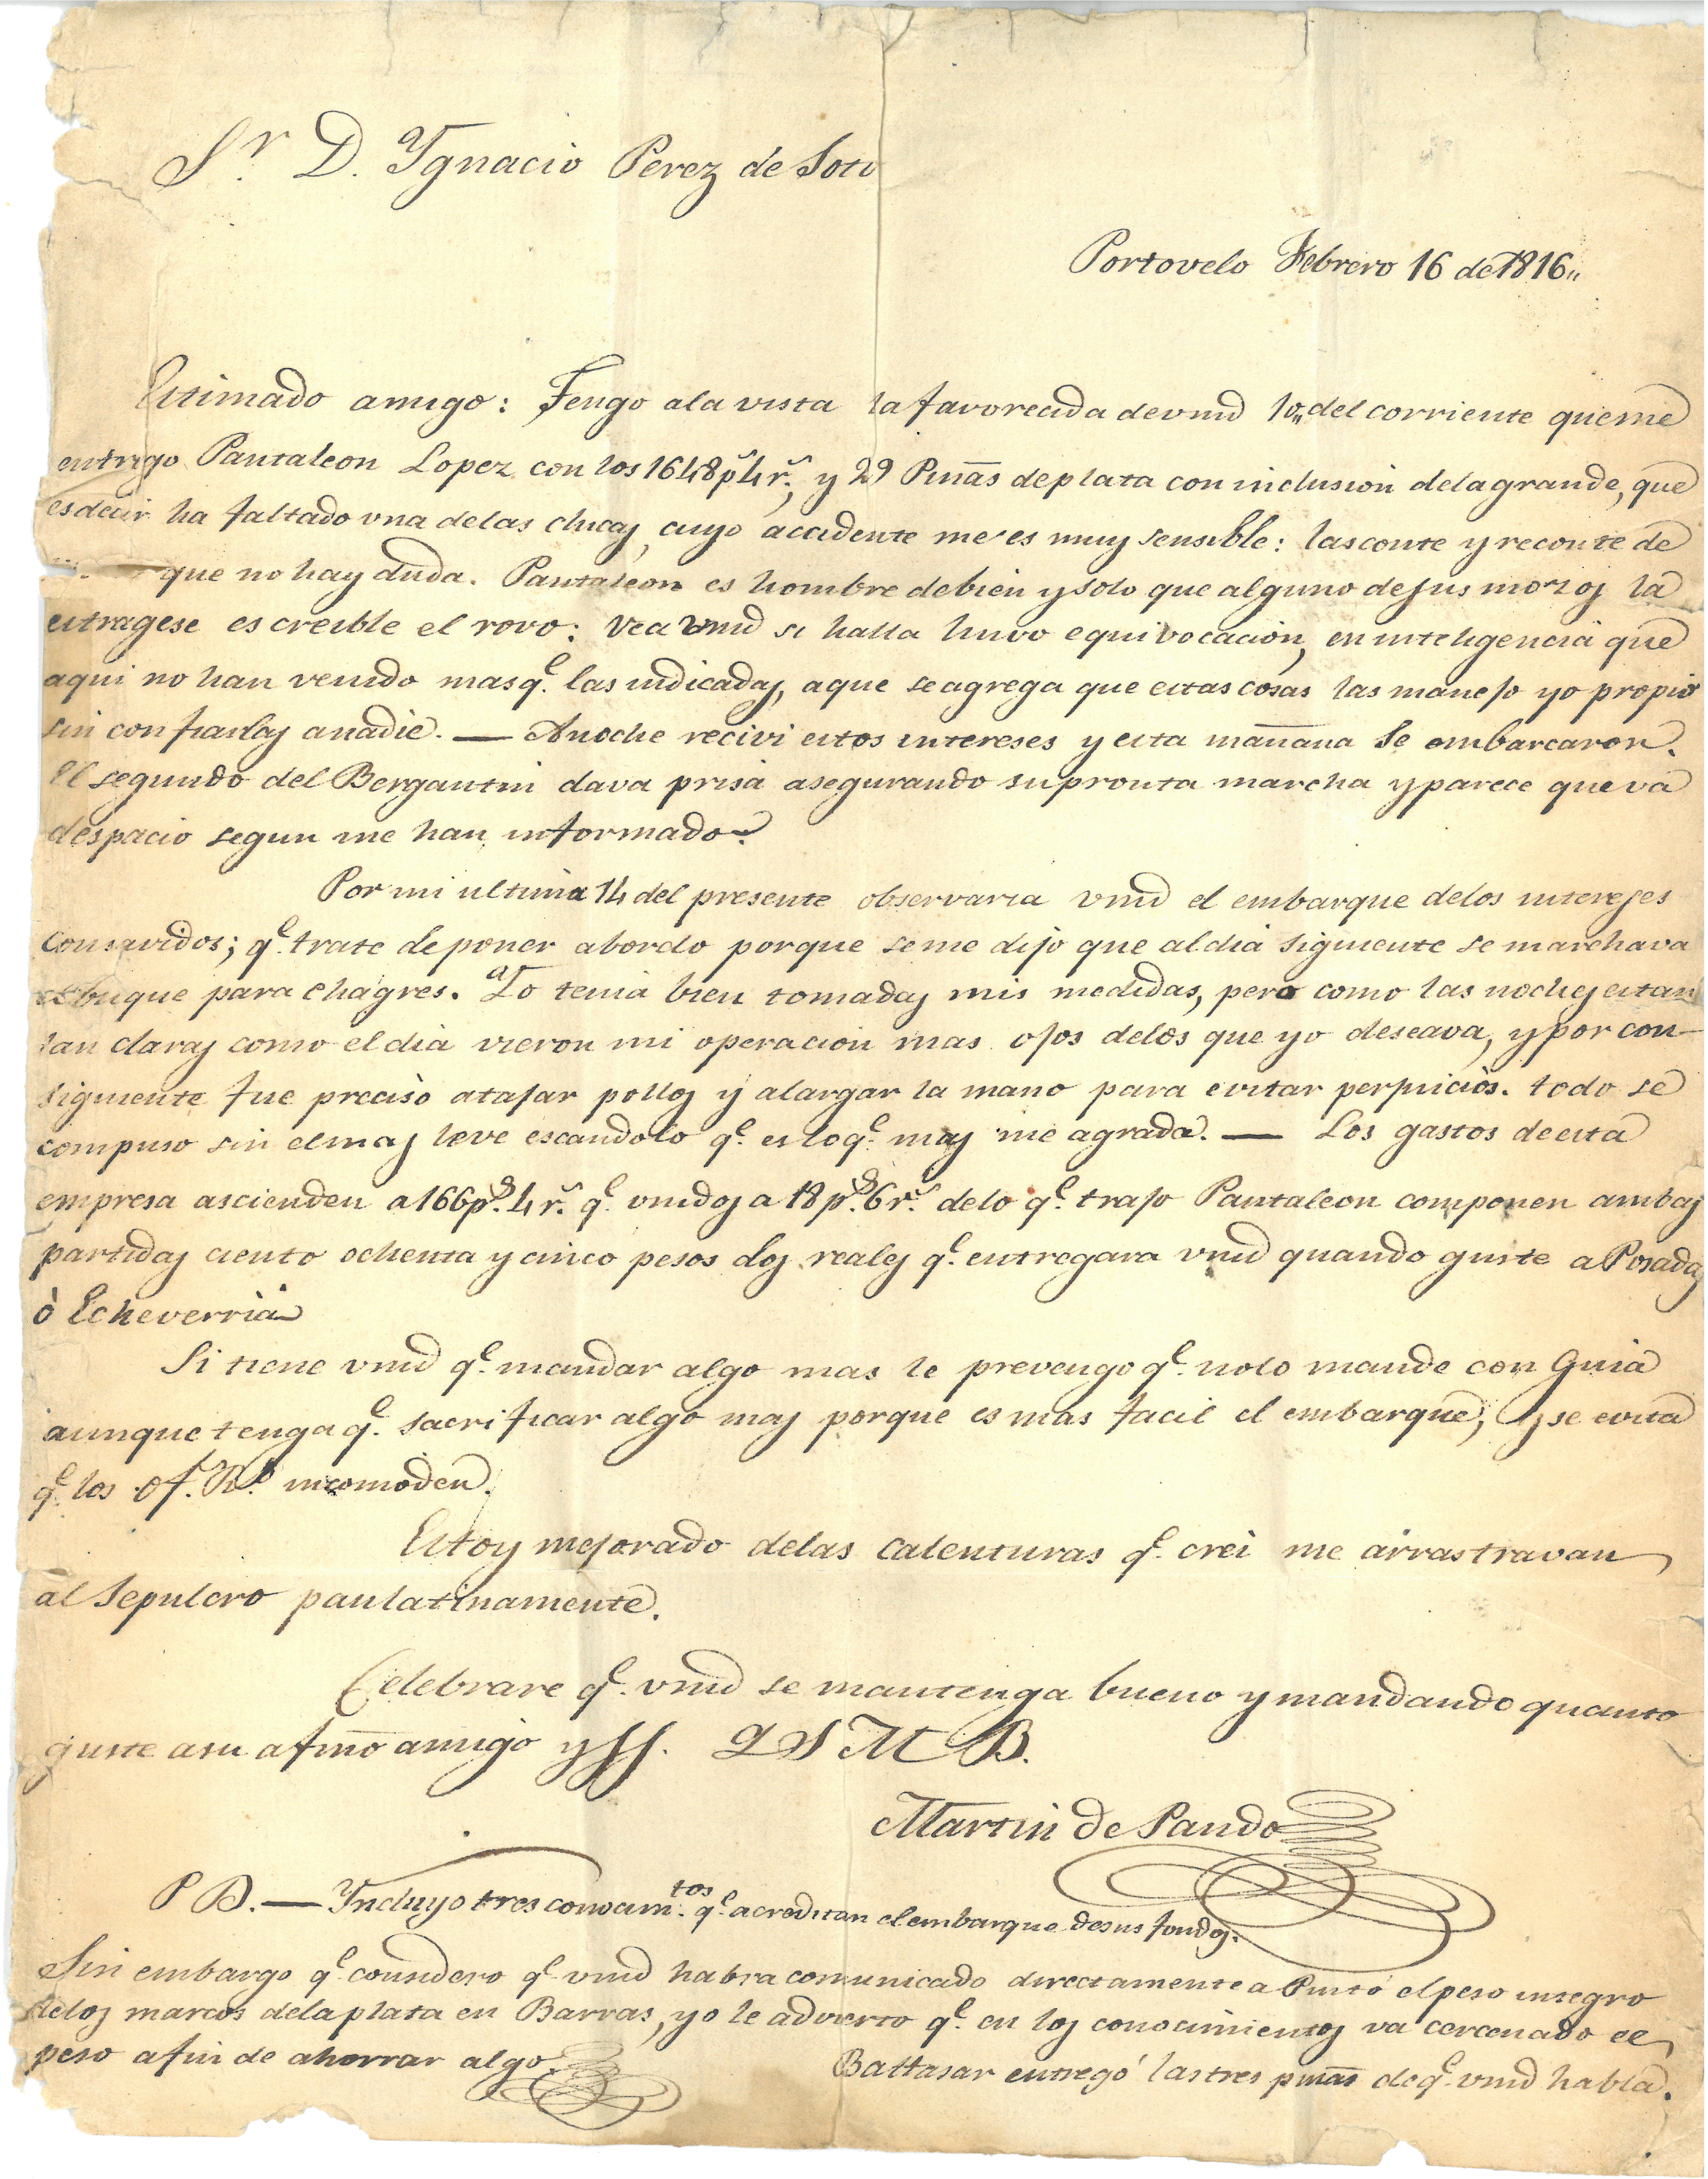 Sr. D. Ygnacio Perez de Soto
Portovelo Febrero 16 de 1816,,
Estimado amigo: Tengo ala vista la favorecida de vmd 10,, del corriente que me
entrego Pantaleon Lopez con los 1648 ps 4 rs., y 29 Piñas de plata con inclusion dela grande, que
es decir ha faltado una delas chicas, cuyo accidente me es muy sensible: las conte y reconte de
que no hay duda. Pantaleon es hombre de bien y solo que alguno de sus mozos la
estragese es creible el rovo: Vea vmd si halla huvo equivocacion, en inteligencia que
aqui no han venido mas qe. las indicadas, a que se agrega que estas cosas las manejo yo propio
sin confiarlas anadie. — Anoche recivi estos intereses y esta mañana se embarcaron.
El segundo del Bergantin dava prisa asegurando su pronta marcha y parece que và
despacio segun me han informado.
Por mi ultima 14 del presente observaria vmd el embarque delos intereses
consavidos; qe. trate de poner abordo porque se me dijo que al dia siguiente se marchava
el buque para Chagres. Yo tenia bien tomadas mis medidas, pero como las noches estan
tan claras como el dia vieron mi operacion mas ojos delos que yo deseava, y por con-
siguiente fue preciso atajar pollos y alargar la mano para evitar perjuicios. todo se
compuso sin el mas leve escandolo qe. es lo qe. mas me agrada. — Los gastos de esta
empresa ascienden a 166 ps. 4 rs. qe. unidos a 18 ps. 6 rs. delo qe. trajo Pantaleon componen ambas
partidas ciento ochenta y cinco pesos dos reales qe. entregara vmd quando guste a Posadas
ò Echeverria
Si tiene vmd qe. mandar algo mas le prevengo qe. nolo mande con Guia
aunque tenga qe. sacrificar algo mas porque es mas facil el embarque, y se evita
qe. los Of. Rs. incomoden.
Estoy mejorado delas calenturas qe. crei me arrastravan
al Sepulcro paulatinamente.
Celebrare qe. vmd se mantenga bueno y mandando quanto
guste asu afmo amigo y SS. Q S M B.
Martin de Pando
P D. — Yncluyo tres conocimtos. qe. acreditan el embarque desus fondos.
Sin embargo qe. considero qe. vmd habra comunicado directamente a Pinto el peso integro
delos marcos dela plata en Barras, yo le advierto qe. en los conocimientos va cercenado el
peso afin de ahorrar algo.
Baltasar entregó las tres piñas de qe. vmd habla.